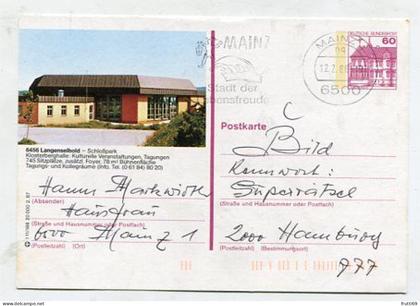 MAINZ
Stadt der
MAINZ
12.2.88
6500
DEUTSCHE BUNDESPOST
60
6456 Langenselbold – Schloßpark
Klosterberghalle: Kulturelle Veranstaltungen, Tagungen
745 Sitzplätze, zusätzl. Foyer, 78 m² Bühnenfläche
Tagungs- und Kollegräume (Info. Tel. (0 61 84) 80 20)
Postkarte
Bild
Kennwort:
Superrätsel
(Straße und Hausnummer oder Postfach)
2000 Hamburg
(Postleitzahl) (Bestimmungsort)
777
Hanne Markwirth
(Absender)
Hausfrau
(Straße und Hausnummer oder Postfach)
6500 Mainz 1
(Postleitzahl) (Ort)